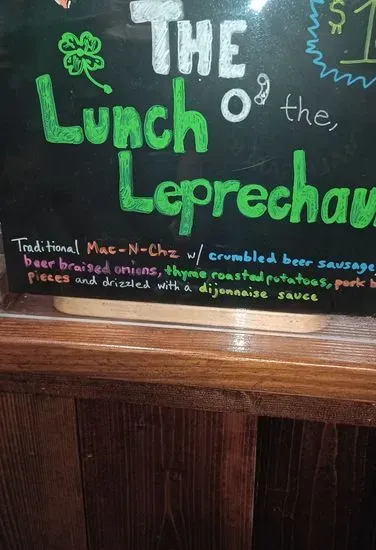 THE
$1
O' the,
Lunch
Leprechau
Traditional Mac-N-Chz w/ crumbled beer sausage
beer braised onions, thyme roasted potatoes, pork b
pieces and drizzled with a dijonnaise sauce